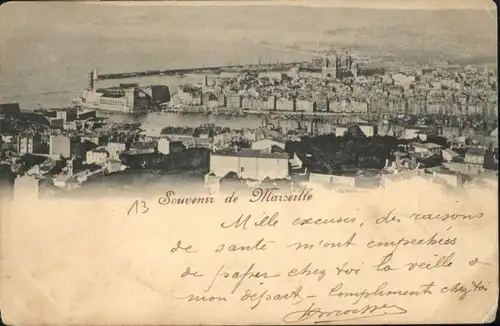 Souvenir de Marseille
13
Mille excuses, des raisons
de santé m'ont empechées
de passer chez toi la veille de
mon départ - Compliment chez toi